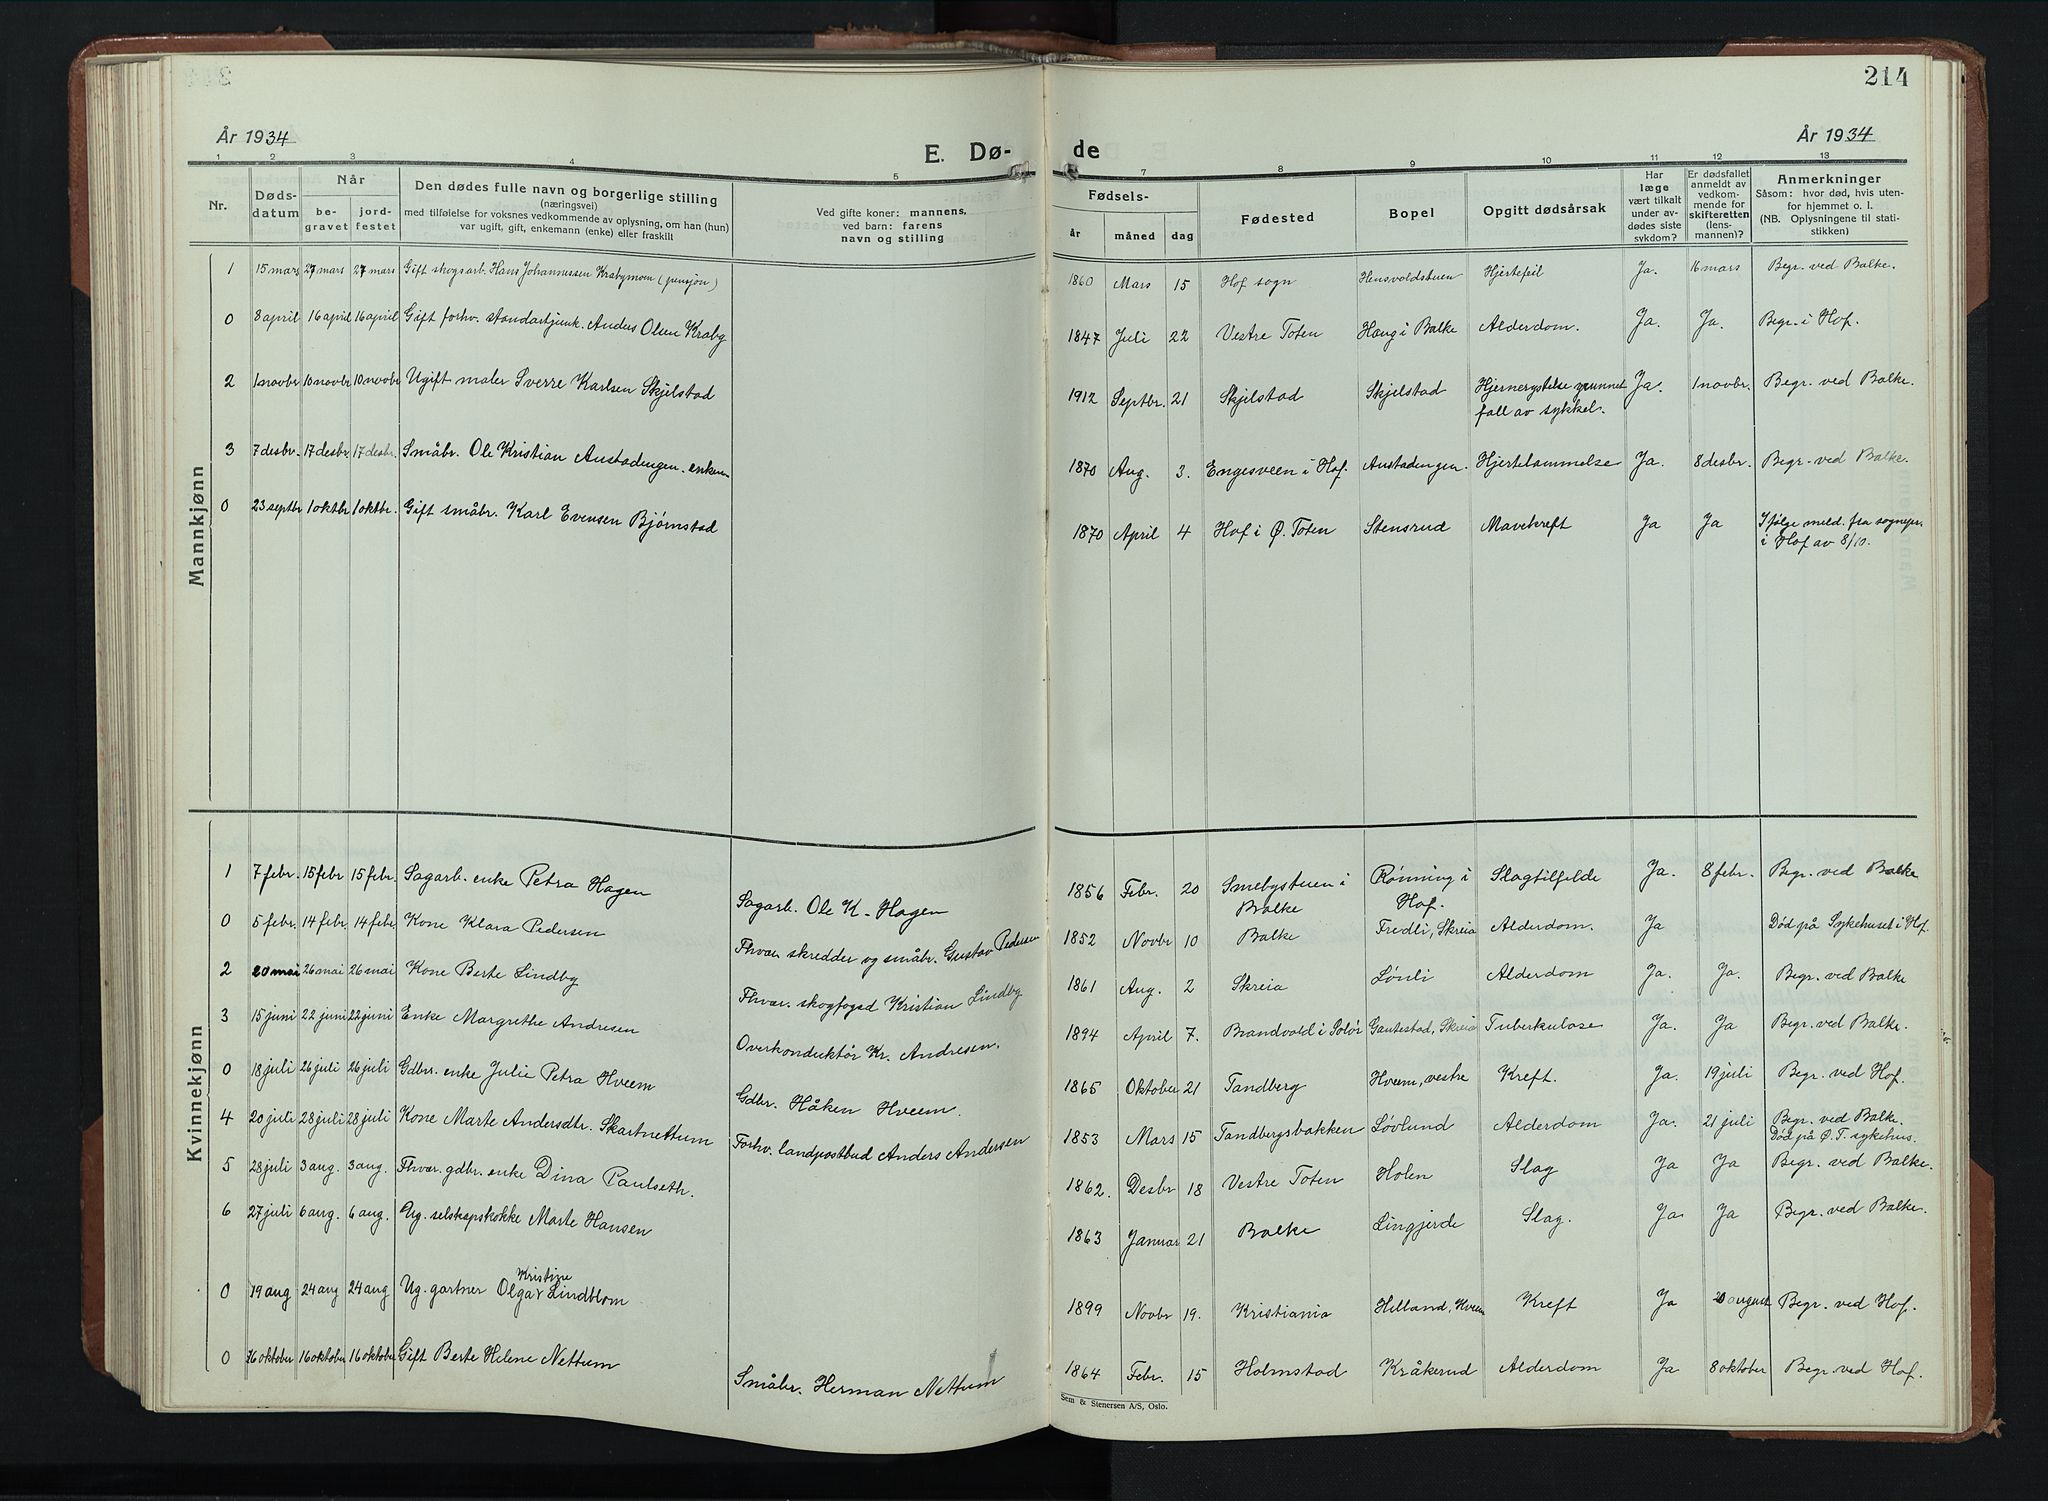 214
År 1934
År 1934
E. Dø-
de
1 2 3 4 5
7 8 9 10 11 12 13
Nr.
Døds-
datum
Når
be-
gravet
jord-
festet
Den dødes fulle navn og borgerlige stilling
(næringsvei)
med tilføielse for voksnes vedkommende av oplysning, om han (hun)
var ugift, gift, enkemann (enke) eller fraskilt
Ved gifte koner: mannens,
ved barn: farens
navn og stilling
Fødsels-
år måned dag
Fødested
Bopel
Opgitt dødsårsak
Har
læge
vært tilkalt
under av-
dødes siste
sykdom?
Er dødsfallet
anmeldt av
vedkom-
mende for
skifteretten
(lens-
mannen)?
Anmerkninger
Såsom: hvor død, hvis uten-
for hjemmet o. l.
(NB. Oplysningene til stati-
stikken)
Mannkjønn
1 15 mars 27 mars 27 mars Gift skogsarb. Hans Johannessen Krabymoen (pensjon) 1860 Mars 15 Hof sogn Hensvoldstuen Hjertefeil Ja. 16 mars Begr. ved Balke.
0 8 april 16 april 16 april Gift forhv. standartjunk. Anders Olsen Kraby 1847 Juli 22 Vestre Toten Haug i Balke Alderdom. Ja. Ja. Begr. i Hof.
2 1 novbr 10 novbr 10 novbr Ugift maler Sverre Karlsen Skjelstad 1912 Septbr. 21 Skjelstad Skjelstad Hjernerystelse grunnet Ja. 1 novbr. Begr. ved Balke.
fall av sykkel.
3 7 desbr. 17 desbr. 17 desbr. Småbr. Ole Kristian Austadengen. enkem 1870 Aug. 3. Engesveen i Hof. Austadengen. Hjertelammelse Ja. 8 desbr. Begr. ved Balke.
0 23 septbr 1 oktbr 1 oktbr. Gift småbr. Karl Evensen Bjørnstad 1870 April 4 Hof i Ø. Toten Stensrud Mavekreft Ja Ja Ifølge meld. fra sognepr.
i Hof av 8/10.
Kvinnekjønn
1 7 febr. 15 febr 15 febr. Sagarb. enke Petra Hagen Sagarb. Ole K. Hagen 1856 Febr. 20 Smebystuen i Rønning i Slagtilfelde Ja. 8 febr. Begr. ved Balke
Balke Hof.
0 5 febr. 14 febr. 14 febr. Kone Klara Pedersen Fhvær. skredder og småbr. Gustav Pedersen 1852 Novbr 10 Balke Fredli, Skreia Alderdom. Ja Død på Sykehuset i Hof.
2 20 mai 26 mai 26 mai Kone Berte Lindby Fhvær. skogfogd Kristian Lindby 1861 Aug. 2 Skreia Lønli Alderdom Ja. Ja. Begr. ved Balke
3 15 juni 22 juni 22 juni Enke Margrethe Andresen Overkonduktør Kr. Andresen. 1894 April 7. Brandvold i Solør Gautestad, Skreia Tuberkulose Ja. Ja Begr. ved Balke.
0 18 juli 26 juli 26 juli Gdbr. enke Julie Petra Hveem Gdbr. Håken Hveem. 1865 Oktober 21 Tandberg Hveem, vestre Kreft. Ja. 19 juli Begr. ved Hof.
4 20 juli 28 juli 28 juli Kone Marte Andersdtr. Skartnettum Forhv. landpostbud Anders Andersen 1853 Mars 15 Tandbergsbakken Løvlund Alderdom Ja. 21 juli Begr. ved Balke.
Død på Ø. T. sykehus.
5 28 juli 3 aug. 3 aug. Fhvær. gdbr. enke Dina Paulseth. 1862. Desbr 18 Vestre Toten Holen Slag Ja Ja Begr. ved Balke.
6 27 juli 6 aug. 6 aug. Ug. selskapskokke Marte Hansen 1863 Januar 21 Balke Lingjerde Slag. Ja Ja Begr. ved Balke.
Kristine
0 19 aug 24 aug 24 aug Ug. gartner Olga Lindblom 1899 Novbr 19. Kristiania Hilland, Hveem Kreft Ja 20 august Begr. ved Hof.
0 16 oktober 16 oktober Gift Berte Helene Nettum Småbr. Herman Nettum 1864 Febr. 15 Holmstad Kråkerud Alderdom Ja 8 oktober Begr. ved Hof.
Sem & Stenersen A/S, Oslo.